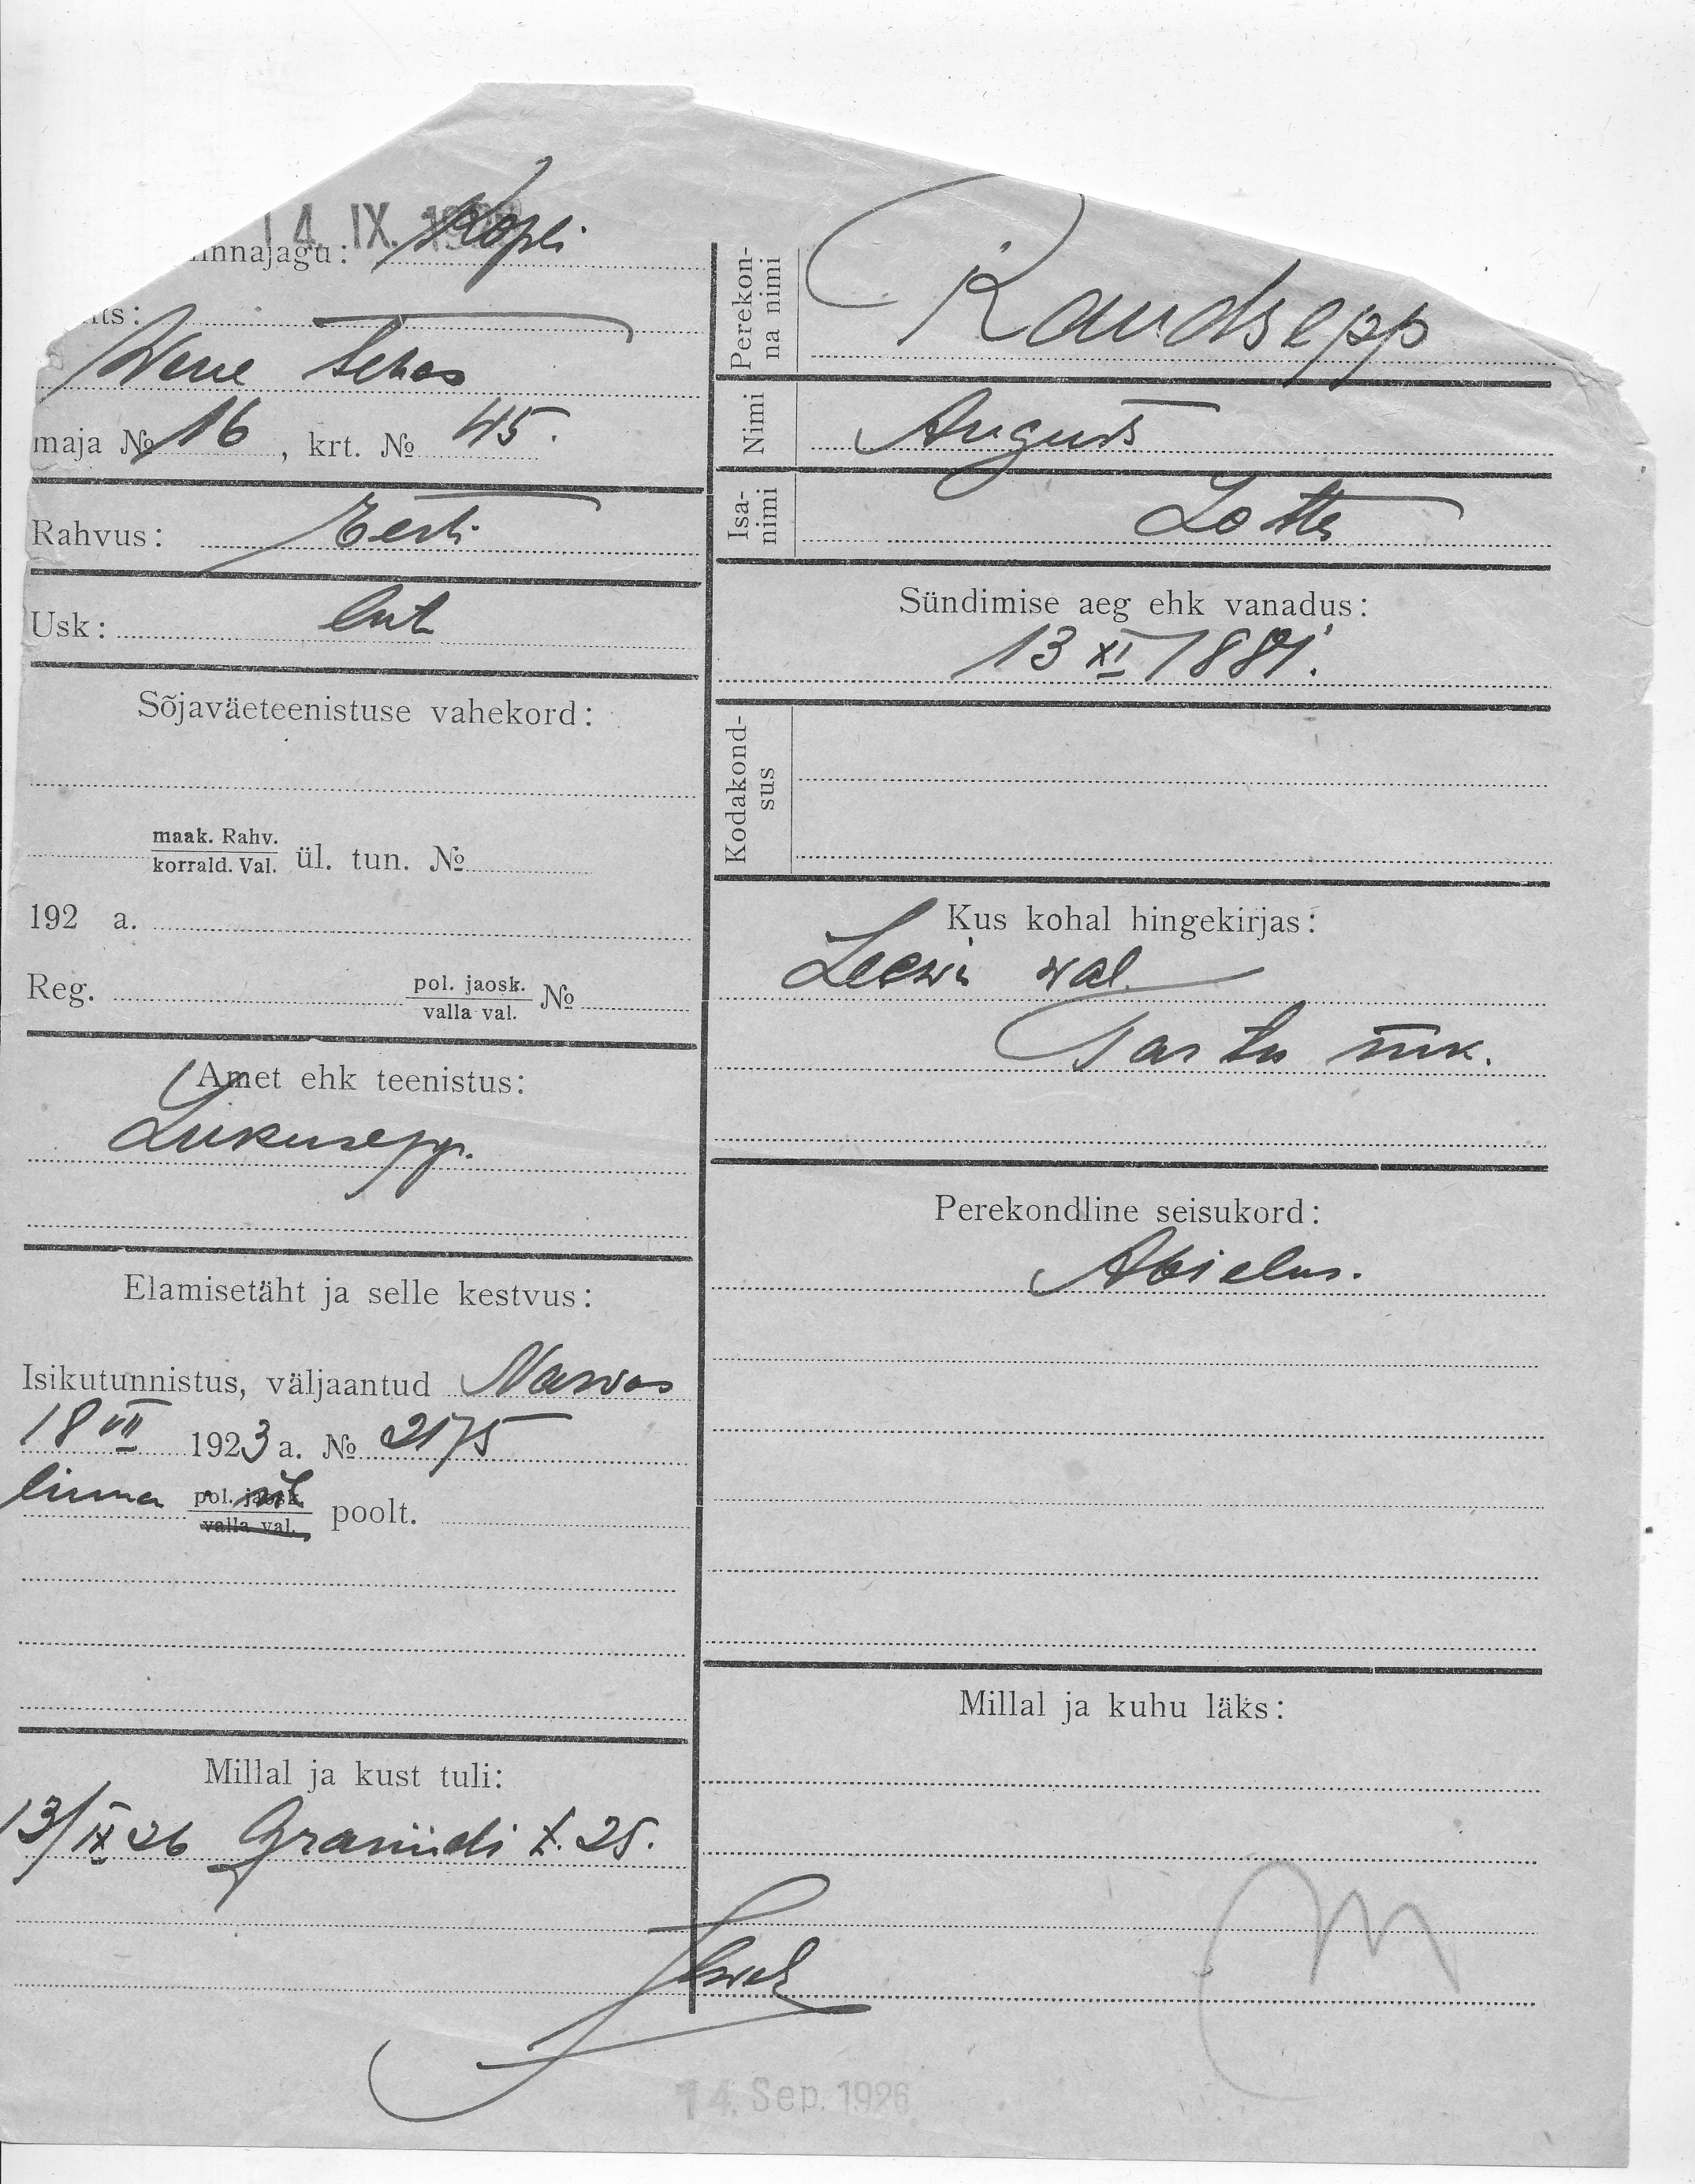 14. IX. 19
innajagu: Kopli
ts:
Wene tehas
maja № 16, krt. № 45.
Rahvus: Eesti
Usk: lut
Sõjaväeteenistuse vahekord:
maak. Rahv.
korrald. Val. ül. tun. №
192 a.
Reg. pol. jaosk.
valla val. №
Amet ehk teenistus:
Lukusepp.
Elamisetäht ja selle kestvus:
Isikutunnistus, väljaantud Narvas
18 VII 1923 a. № 2175
linna pol. jaosk.
valla val. poolt.
Millal ja kust tuli:
13/IX 26 Graniidi t. 25.
Perekon-
na nimi
Raudsepp
Nimi August
Isa-
nimi
Sündimise aeg ehk vanadus:
13 XI 1881.
Kodakond-
sus
Kus kohal hingekirjas:
Leewi wal.
Tartu mk.
Perekondline seisukord:
Abielus.
Millal ja kuhu läks:
14. Sep. 1926